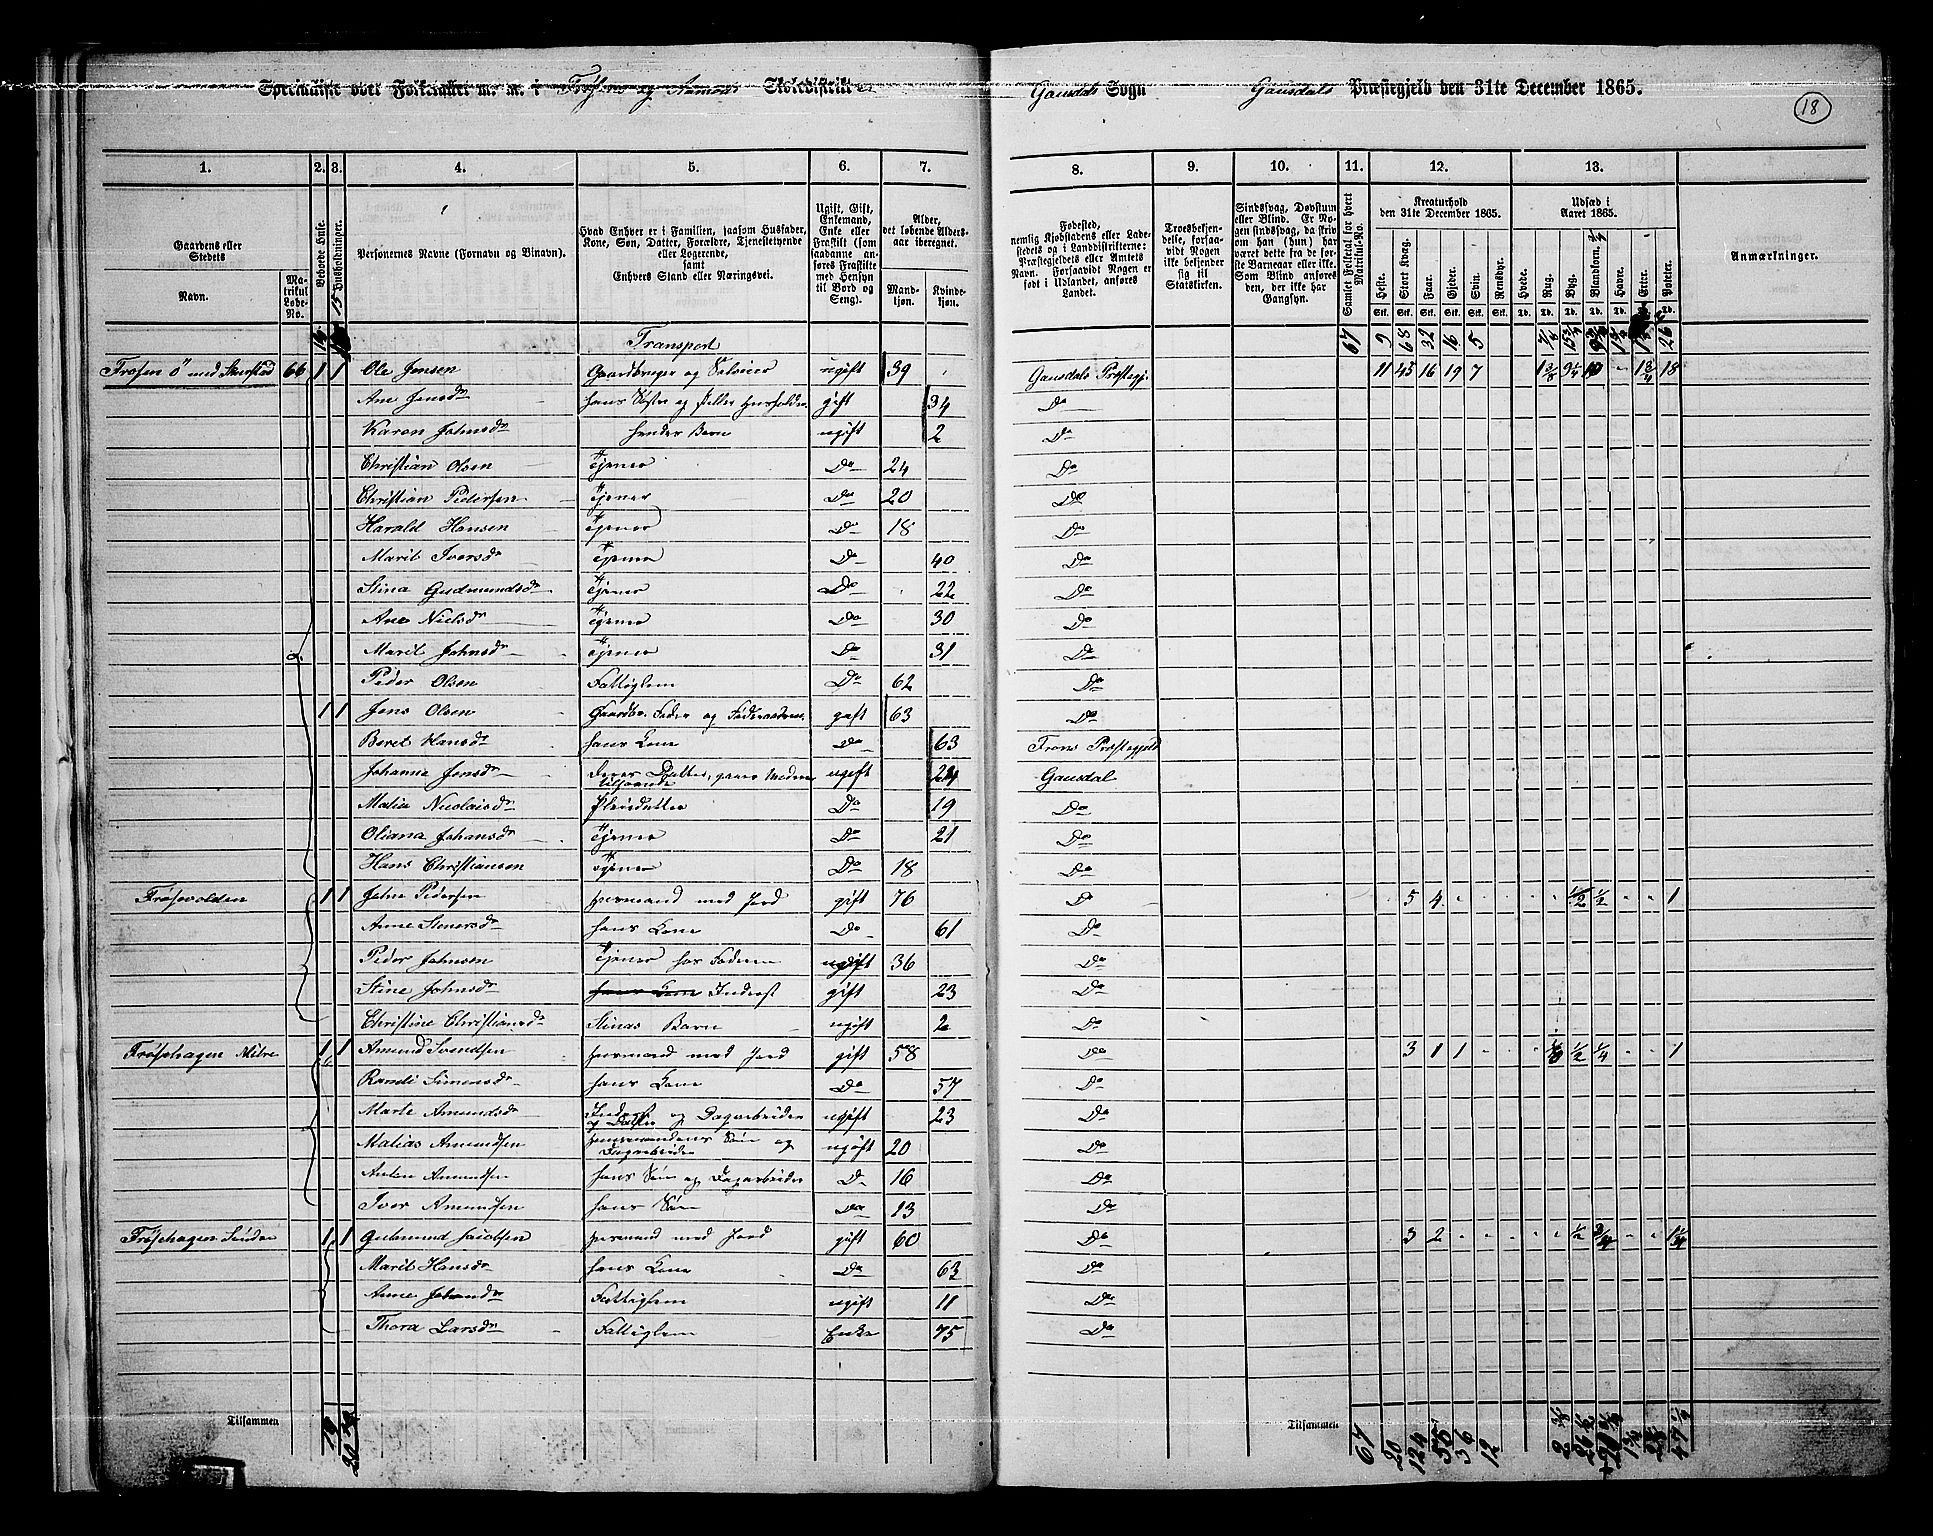 Specialliste over Folketallet m. m. i Frøsens og Skoledistrikt Gausdals Sogn Gausdals Præstegjeld den 31te December 1865.
18
1. 2. 3. 4. 5. 6. 7. 8. 9. 10. 11. 12. 13.
Gaardens eller Stedets
Navn.
Matrikul Løbe-No.
Beboede Huse.
Husholdninger.
Personernes Navne (Fornavn og Binavn).
Hvad Enhver er i Familien, saasom Husfader, Kone, Søn, Datter, Forældre, Tjenestetyende eller Logerende, samt Enhvers Stand eller Næringsvei.
Ugift, Gift, Enkemand, Enke eller Fraskilt (som saadanne anføres Fraskilte med Hensyn til Bord og Seng).
Alder, det løbende Aldersaar iberegnet.
Mandkjøn. Kvindekjøn.
Fødested, nemlig Kjøbstadens eller Ladestedets og i Landdistrikterne: Præstegjeldets eller Amtets Navn. Forsaavidt Nogen er født i Udlandet, anføres Landet.
Troesbekjendelse, forsaavidt Nogen ikke bekjender sig til Statskirken.
Sindssvag, Døvstum eller Blind. Er Nogen sindssvag, da skrives om han (hun) har været dette fra de første Barneaar eller ikke. Som Blind anføres den, der ikke har Gangsyn.
Samlet Folketal for hvert Matrikul-No.
Kreaturhold den 31te December 1865.
Heste. Stort Kvæg. Faar. Gjeder. Svin. Rensdyr.
Udsæd i Aaret 1865.
Hvede. Rug. Byg. Blandkorn. Havre. Erter. Poteter.
Anmærkninger.
Transport 67 9 68 32 16 5 26
66 1 1 Ole Jensen Gaardbruger og Selveier ugift 39 Gausdals Præstegj. 11 45 16 19 7 18
Ane Jensdr hans Søster og steller Husholdn. gift 34 Do
Karen Johnsdr hendes Barn ugift 2 Do
Christian Olsen Tjener Do 24 Do
Christian Pedersen Tjener Do 20 Do
Harald Hansen Tjener Do 18 Do
Marit Iversdr Tjener Do 40 Do
Stina Gudmundsdr Tjener Do 22 Do
Ane Nielsdr Tjener Do 30 Do
Marit Johnsdr Tjener Do 31 Do
Peder Olsen Fattiglem Do 62 Do
1 1 Jens Olsen Gaardbr. Fader og Føderaadsm. gift 63 Do
Beret Hansdr hans Kone Do 63 Frons Præstegjeld
Johanne Jensdr deres Datter, ugift 24 Gausdal
Matia Nicolaisdr Pleiedatter Do 19 Do
Oliana Johansdr Tjener Do 21 Do
Hans Christiansen Tjener Do 18 Do
Frøsevolden 1 1 John Pedersen Husmand med Jord gift 76 Do 5 4 1/2 1/2 1
Anne Stenersdr hans Kone Do 61 Do
Peder Johnsen Tjener hos Faderen ugift 36 Do
Stine Johnsdr hans Kone Inderst gift 23 Do
Christine Christiansdr Stinas Barn ugift 2 Do
Frøshagen Nedre 1 1 Amund Svendsen Husmand med Jord gift 58 Do 3 1 1 1/2 1/4 1
Randi Simensdr hans Kone Do 57 Do
Marte Amundsdr Inderst og Dagarbeider og Datter ugift 23 Do
Matias Amundsen Husmandens Søn og Dagarbeider ugift 20 Do
Anton Amundsen hans Søn og Dagarbeider Do 16 Do
Iver Amundsen hans Søn Do 13 Do
Frøshagen Søndre 1 1 Gudmund Jacobsen Husmand med Jord gift 60 Do 3 2 1/2 3/4 1 1/4
Marit Hansdr hans Kone Do 63 Do
Anne Fattiglem ugift 11 Do
Thora Larsdr Fattiglem Enke 75 Do
Tilsammen 19 20
Tilsammen 67 20 124 55 36 12